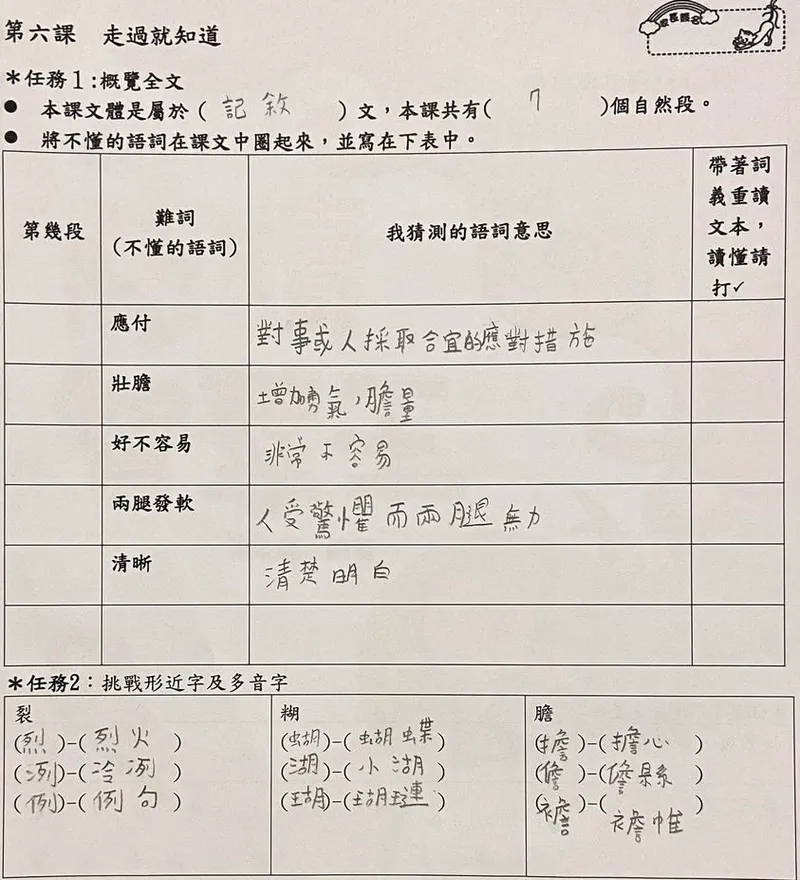 第六課 走過就知道
家長簽名
＊任務1:概覽全文
● 本課文體是屬於(記敘)文，本課共有(7)個自然段。
● 將不懂的語詞在課文中圈起來，並寫在下表中。
第幾段
難詞
(不懂的語詞)
我猜測的語詞意思
帶著詞
義重讀
文本，
讀懂請
打✓
應付
對事或人採取合宜的應對措施
壯膽
增加勇氣，膽量
好不容易
非常不容易
兩腿發軟
人受驚懼而兩腿無力
清晰
清楚明白
＊任務2：挑戰形近字及多音字
裂
(烈)-(烈火)
(冽)-(冷冽)
(例)-(例句)
糊
(蝴)-(蝴蝶)
(湖)-(小湖)
(瑚)-(瑚璉)
膽
(擔)-(擔心)
(儋)-(儋縣)
(襜)-(襜帷)